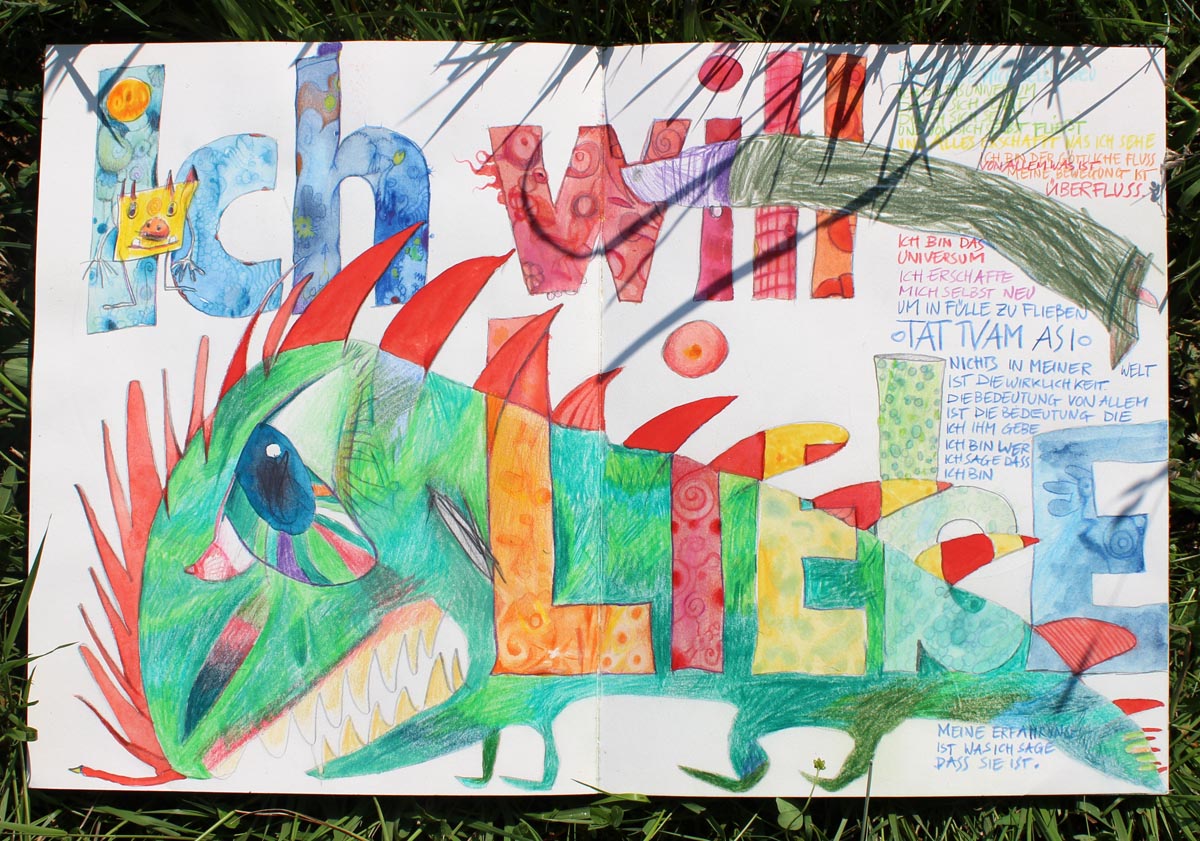 Ich will
LIEBE
UNIVERSUM
UND VON SICH SELBST FLIEßT
UND ALLES ERSCHAFFT WAS ICH SEHE
ICH BIN DER GÖTTLICHE FLUSS
VON ALLEM WAS IST
MEINE BEWEGUNG IST
ÜBERFLUSS.
ICH BIN DAS
UNIVERSUM
ICH ERSCHAFFE
MICH SELBST NEU
UM IN FÜLLE ZU FLIEßEN
TAT TVAM ASI
NICHTS IN MEINER WELT
IST DIE WIRKLICHKEIT
DIE BEDEUTUNG VON ALLEM
IST DIE BEDEUTUNG DIE
ICH IHM GEBE
ICH BIN WER
ICH SAGE DASS
ICH BIN
MEINE ERFAHRUNG
IST WAS ICH SAGE
DASS SIE IST.